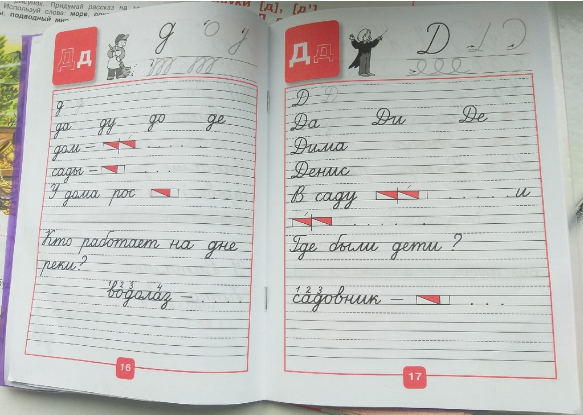 Используй слова: море,
подводный
[д], [д']
Д д
д
д
да ду до де
дом –
сады –
У дома рос
Кто работает на дне
реки?
1 2 3 4
водолаз –
16
Д д
Д
Д
Да Ди Де
Дима
Денис
В саду и
Где были дети?
1 2 3
садовник –
17